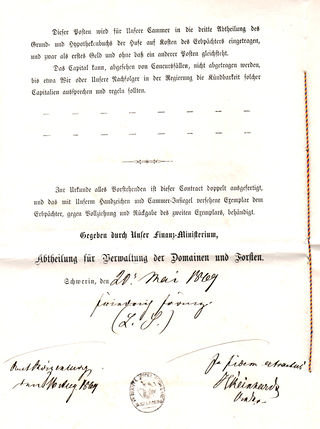 Dieser Posten wird für Unsere Cammer in die dritte Abtheilung des
Grund- und Hypothekenbuchs der Hufe auf Kosten des Erbpächters eingetragen,
und zwar als erstes Geld und ohne daß ein anderer Posten gleichsteht.
Das Capital kann, abgesehen von Concursfällen, nicht abgetragen werden,
bis etwa Wir oder Unsere Nachfolger in der Regierung die Kündbarkeit solcher
Capitalien aussprechen und regeln sollten.
Zur Urkunde alles Vorstehenden ist dieser Contract doppelt ausgefertigt,
und das mit Unserm Handzeichen und Cammer-Insiegel versehene Exemplar dem
Erbpächter, gegen Vollziehung und Rückgabe des zweiten Exemplars, behändigt.
Gegeben durch Unser Finanz-Ministerium,
Abtheilung für Verwaltung der Domainen und Forsten.
Schwerin, den 20. Mai 1869
Friedrich Franz
(L. S.)
1869